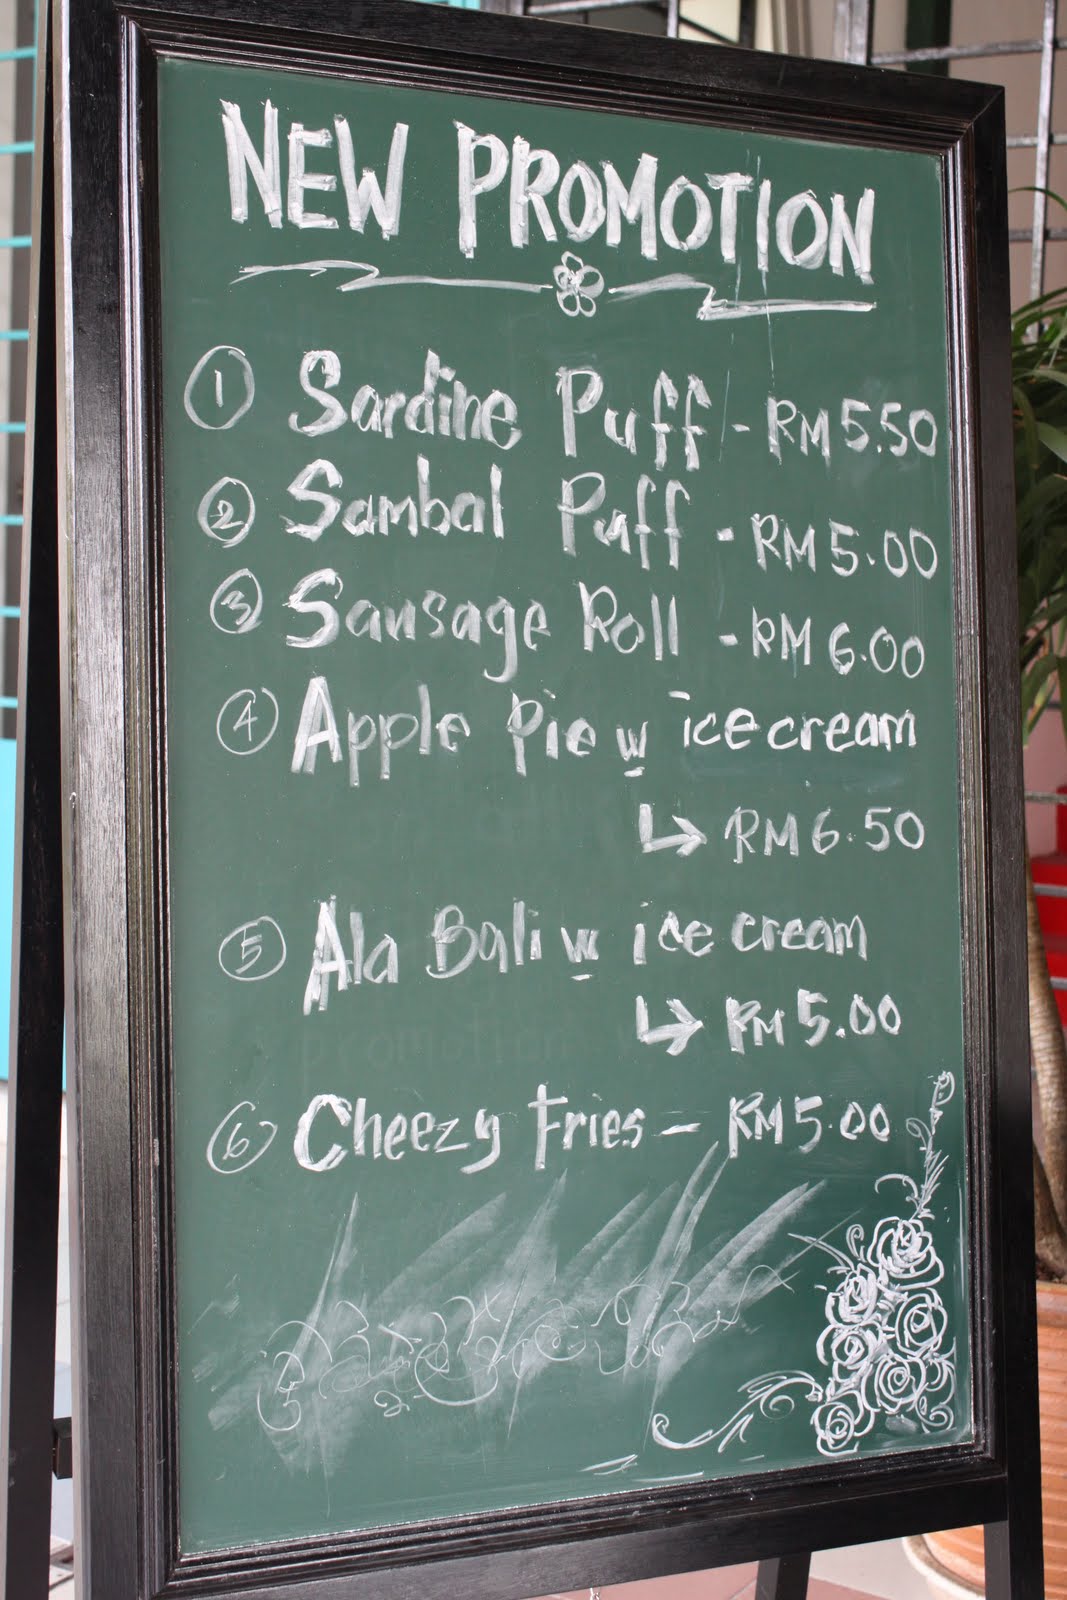 NEW PROMOTION
1 Sardine Puff - RM 5.50
2 Sambal Puff - RM 5.00
3 Sausage Roll - RM 6.00
4 Apple Pie w ice cream
↳ RM 6.50
5 Ala Bali w ice cream
↳ RM 5.00
6 Cheezy Fries - RM 5.00